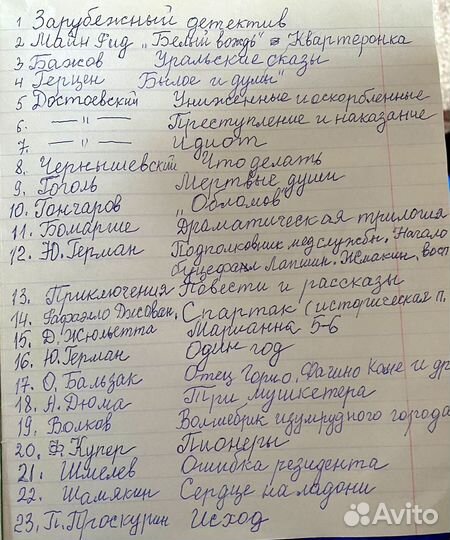 1 Зарубежный детектив
2 Майн Рид „Белый вождь" Квартеронка
3 Бажов Уральские сказы
4 Герцен Былое и думы"
5 Достоевский Униженные и оскорбленные
6. —"— Преступление и наказание
7. —"— Идиот
8. Чернышевский Что делать
9. Гоголь Мертвые души
10. Гончаров „Обломов"
11. Бомарше Драматическая трилогия
12. Ю. Герман Подполковник мед службы. Начало
Буцефал. Лапшин. Жмакин. Восп
13. Приключения Повести и рассказы
14. Джовани. Спартак (историческая п.
15. Д. Жюльетта Марианна 5-6
16. Ю. Герман Один год
17. О. Бальзак Отец Горио. Фачино Кане и др
18. А. Дюма Три мушкетера
19. Волков Волшебник изумрудного города
20. Ф. Купер Пионеры
21. Шмелев Ошибка резидента
22. Шамякин Сердце на ладони
23. П. Проскурин Исход
Avito